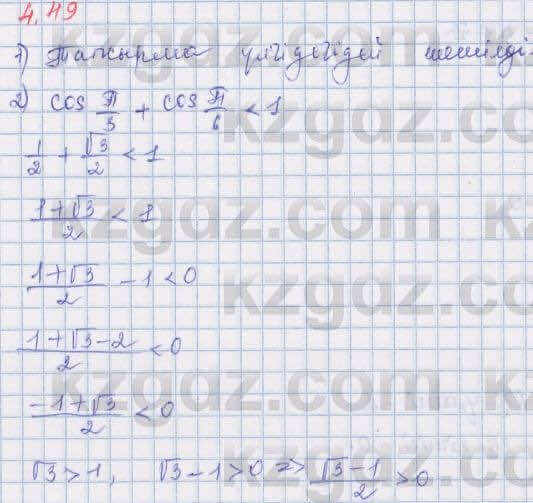 4.49
1) Тапсырма үлгідегідей шешілді.
2) cos π/3 + cos π/6 < 1
1/2 + √3/2 < 1
(1+√3)/2 < 1
(1+√3)/2 - 1 < 0
(1+√3-2)/2 < 0
(-1+√3)/2 < 0
√3 > 1, √3 - 1 > 0 => (√3-1)/2 > 0
kzgdz.com
kzgdz.com
kzgdz.com
kzgdz.com
kzgdz.com